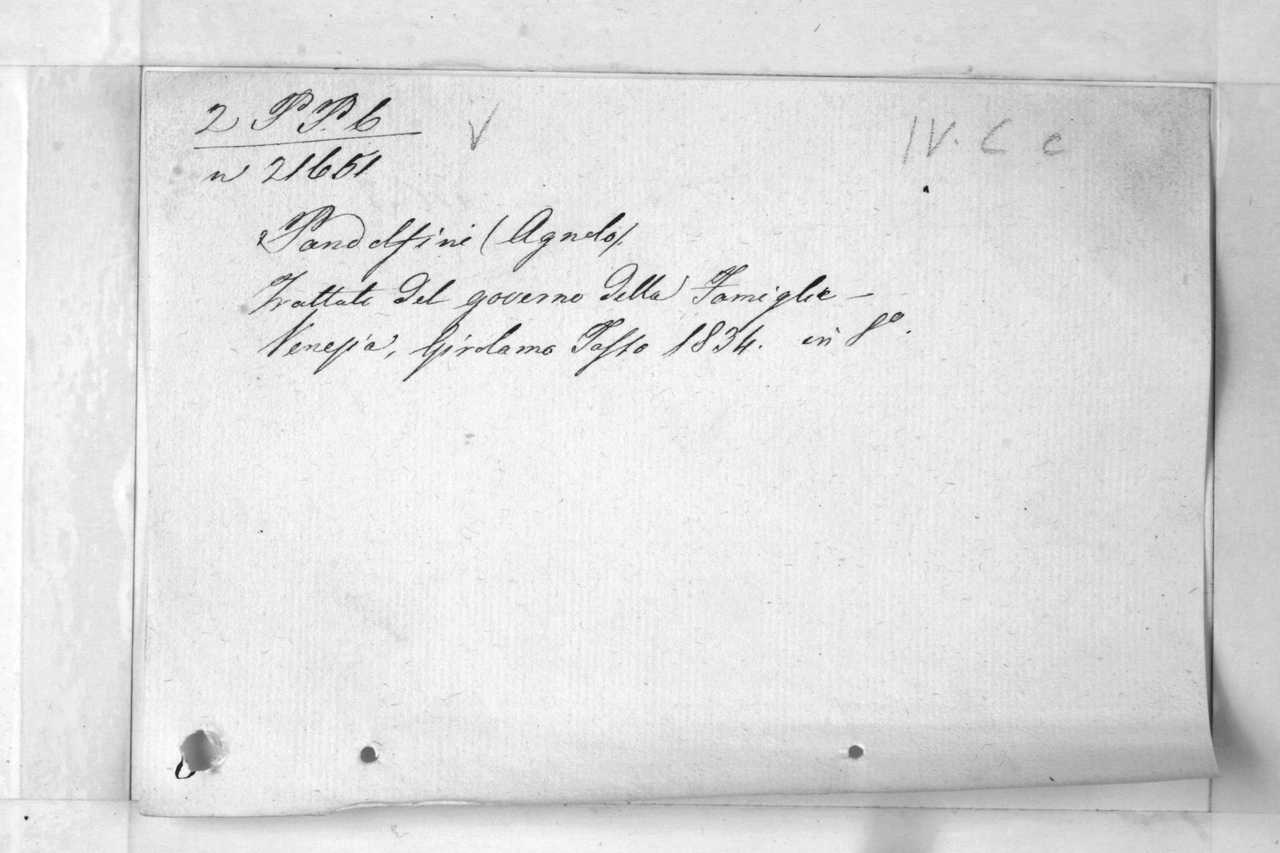 2 P P. b V IV. C c
n 21651
Pandolfini (Agnolo).
Trattato del governo della Famiglia —
Venezia, Girolamo Tasso 1834. in 8º.